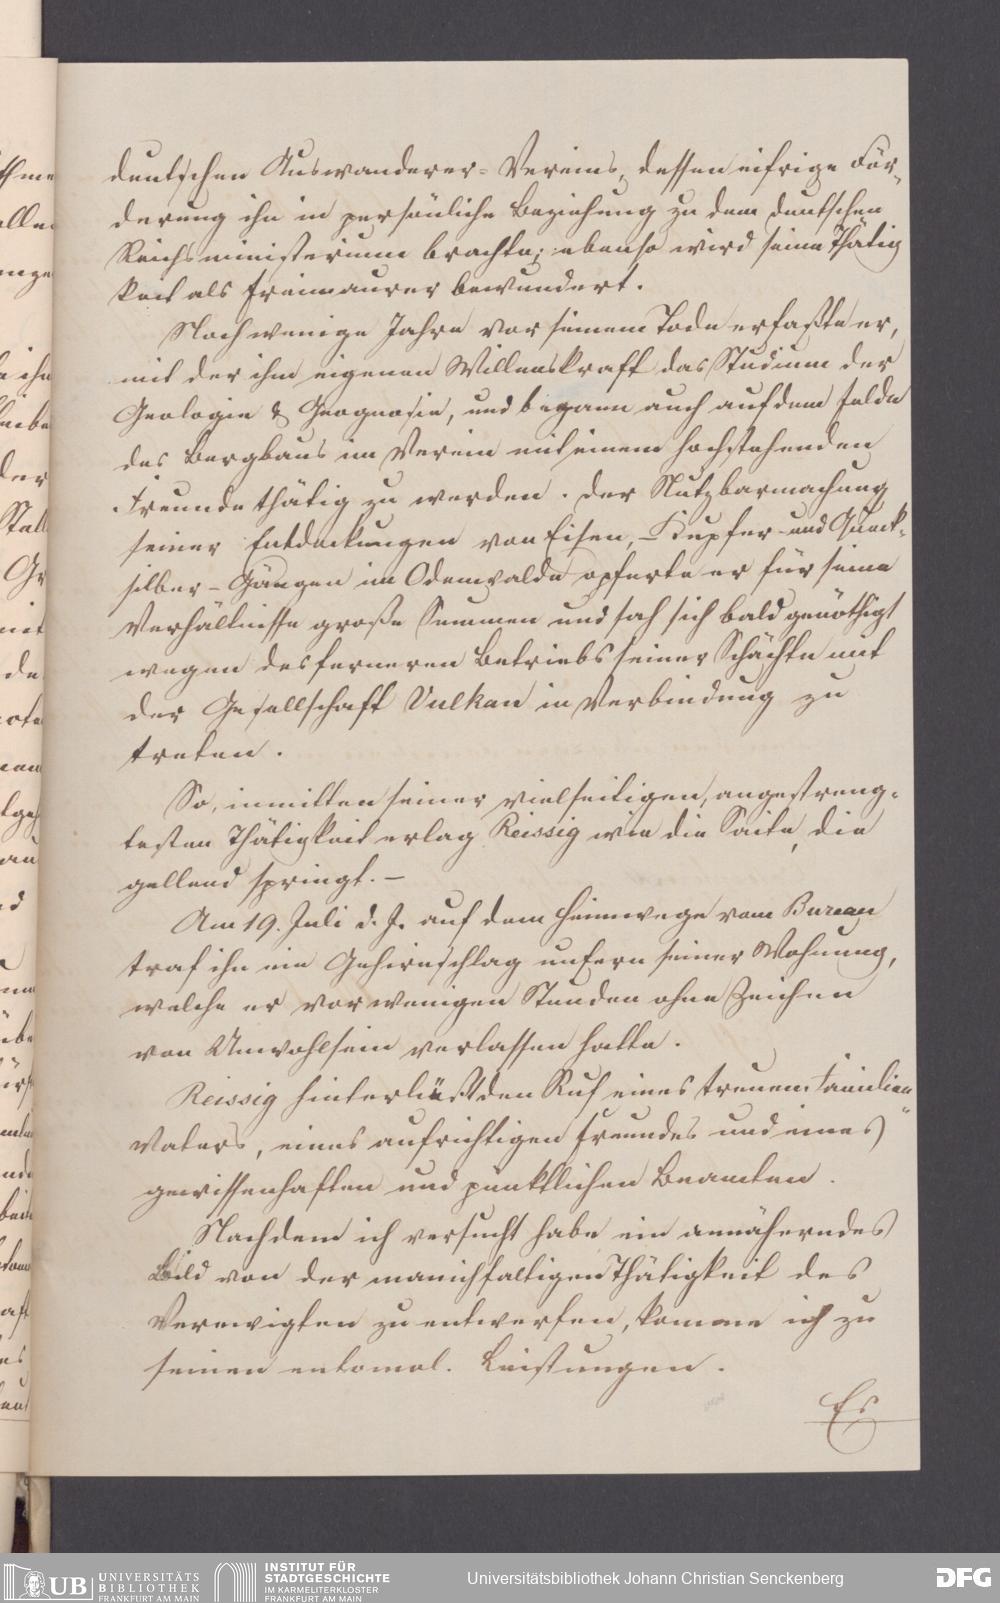 deutschen Auswanderer-Vereins, dessen eifrige För-
derung ihn in persönliche Beziehung zu dem deutschen
Reichsministerium brachte; ebenso wird seine Thätig
keit als Freimaurer bewundert.
Noch wenige Jahre vor seinem Tode erfaßte er,
mit der ihm eigenen Willenskraft das Studium der
Geologie & Geognosie, und begann auch auf dem Felde
des Bergbaus im Verein mit einem hochstehenden
Freunde thätig zu werden. Der Nutzbarmachung
seiner Entdeckungen von Eisen, - Kupfer- und Queck-
silber-Gängen im Odenwalde opferte er für seine
Verhältnisse große Summen und sah sich bald genöthigt
wegen des ferneren Betriebs seiner Schächte mit
der Gesellschaft Vulkan in Verbindung zu
treten.
So, inmitten seiner vielseitigen, angestreng-
testen Thätigkeit erlag Reissig wie die Saite, die
gellend springt. -
Am 19. Juli d. J. auf dem Heimwege vom Bureau
traf ihn ein Gehirnschlag unfern seiner Wohnung,
welche er vor wenigen Stunden ohne Zeichen
von Unwohlsein verlassen hatte.
Reissig hinterläßt den Ruf eines treuen Familien
Vaters, eines aufrichtigen Freundes und eines
gewissenhaften und pünktlichen Beamten.
Nachdem ich versucht habe ein annäherndes
Bild von der manichfaltigen Thätigkeit des
Verewigten zu entwerfen, komme ich zu
seinen entomol. Leistungen.
Es
UB UNIVERSITÄTS
BIBLIOTHEK
FRANKFURT AM MAIN
INSTITUT FÜR
STADTGESCHICHTE
IM KARMELITERKLOSTER
FRANKFURT AM MAIN
Universitätsbibliothek Johann Christian Senckenberg
DFG